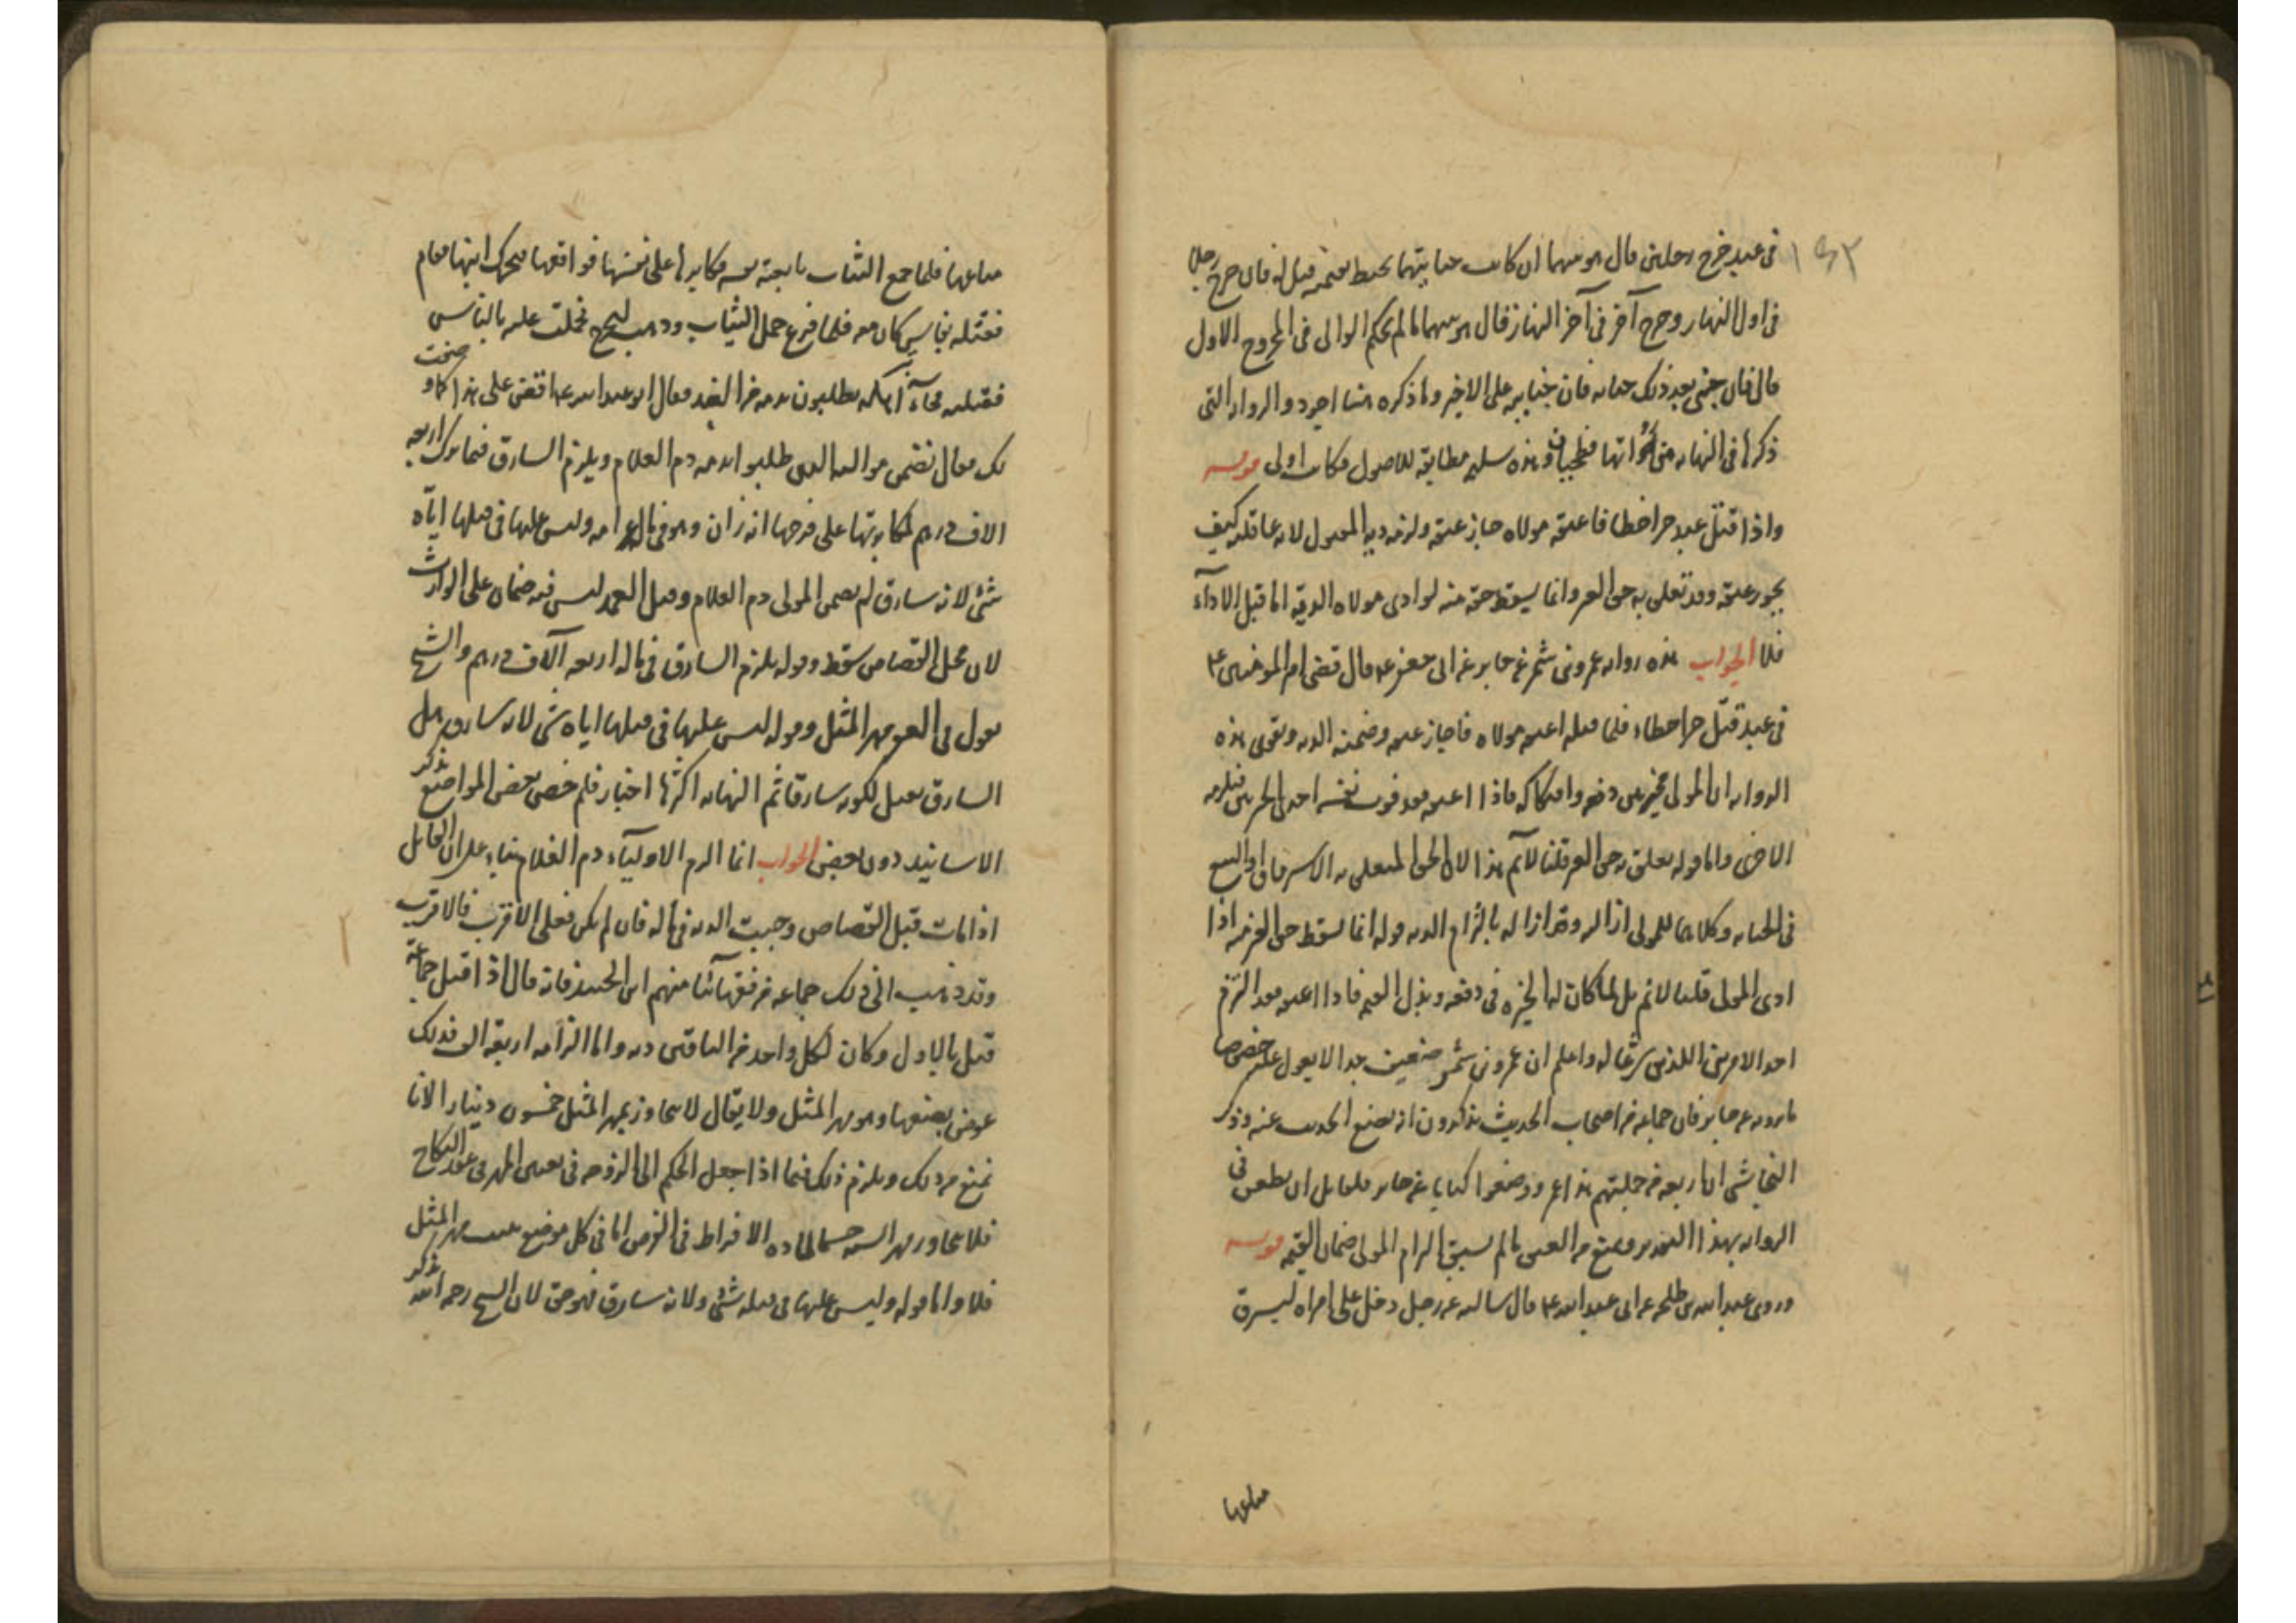 ١٤٣
في عبد جرح رجلين قال هو بينهما ان كانت جنايتهما تحيط بقيمته قيل له فان جرح رجلا
في اول النهار وجرح آخر في آخر النهار قال هو بينهما ما لم يحكم الوالي في المجروح الاول
قال فان جنى بعد ذلك جناية فان جنايته على الاخير وما ذكره هنا اجود والرواية التي
ذكرها في النهاية وهذه سليمة مطابقة للاصول فكانت اولى قوله
واذا قتل عبد حرا خطا فاعتقه مولاه جاز عتقه ولزمه دية المقتول لانه عاقلته كيف
يجوز عتقه وقد تعلق به حق الغير وانما يسقط حقه منه لو ادى مولاه الدية اما قبل الاداء
فلا الجواب هذه رواية عمرو بن شمر عن جابر عن ابي جعفر ع قال قضى امير المؤمنين ع
في عبد قتل حرا خطاء فلما قتله اعتقه مولاه فاجاز عتقه وضمنه الدية ويقوي هذه
الرواية ان المولى مخير بين دفعه وافتكاكه فاذا اعتقه فقد فوت نفسه احدى الخيرتين فيلزمه
الاخرى واما قوله تعلق به حق الغير قلنا لا نم هذا لان الحق المتعلق به الاسترقاق او البيع
في الجناية وكلاهما للمولى ازالته وقد ازاله بالتزام الدية قوله انما يسقط حق الغير منه اذا
ادى المولى قلنا لا نم بل لما كان له الخيرة في دفعه وبذل القيمة فاذا اعتقه فقد التزم
احد الامرين اللذين شرعا له واعلم ان عمرو بن شمر ضعيف جدا لا يعول عليه خصوصا
ما يرويه عن جابر فان جماعة من اصحاب الحديث يذكرون انه يضع الحديث عنه وذكر
النجاشي ان اربعة من جملتهم هذا عمرو وضعوا كتابا عن جابر فلقائل ان يطعن في
الرواية بهذا التقدير ويمنع من العتق ما لم يسبق التزام المولى ضمان القيمة قوله
وروى عبد الله بن طلحة عن ابي عبد الله ع قال سالته عن رجل دخل على امراة ليسرق
متاعها
متاعها فلما جمع الثياب تابعته نفسه فكابرها على نفسها فواقعها فتحرك ابنها فقام
فقتله بفاس كان معه فلما فرغ حمل الثياب وذهب ليخرج فحملت عليه بالفاس
فقتلته فجاء اهله يطلبون بدمه من الغد فقال ابو عبد الله ع اقض على هذا كما وصفت
لك فقال تضمن مواليه الذين طلبوا بدمه دم الغلام ويلزم السارق فيما ترك اربعة
الاف درهم لمكابرتها على فرجها انه زان وهو في ماله غرامة وليس عليها في قتلها اياه
شئ لانه سارق لم يضمن المولى دم الغلام وقتل العمد ليس فيه ضمان على الوارث
لان محل القصاص سقط وقوله يلزم السارق في ماله اربعة آلاف درهم والشيخ
يقول في العقر مهر المثل وقوله ليس عليها في قتلها اياه شئ لانه سارق هل
السارق يقتل لكونه سارقا ثم النهاية اكثرها اخبار فلم خص بعض المواضع بذكر
الاسانيد دون بعض الجواب انما الزم الاولياء دم الغلام بناء على ان القاتل
اذا مات قبل القصاص وجبت الدية في ماله فان لم يكن فعلى الاقرب فالاقرب
وقد ذهب الى ذلك جماعة من فقهائنا منهم ابن الجنيد فانه قال اذا قتل جماعة
قتل بالاول وكان لكل واحد من الباقين دية واما الزامه اربعة الف فذلك
عوض بضعها وهو مهر المثل ولا يقال لا يتجاوز بمهر المثل خمسون دينار لانا
نمنع من ذلك ويلزم ذلك فيما اذا جعل الحكم الى الزوجة في تعيين المهر في عقد النكاح
فلا يتجاوز مهر السنة حسما لمادة الافراط في الفرض اما في كل موضع يجب مهر المثل
فلا واما قوله وليس عليها في قتله شئ ولانه سارق فهو حق لان الشيخ رحمه الله ذكر